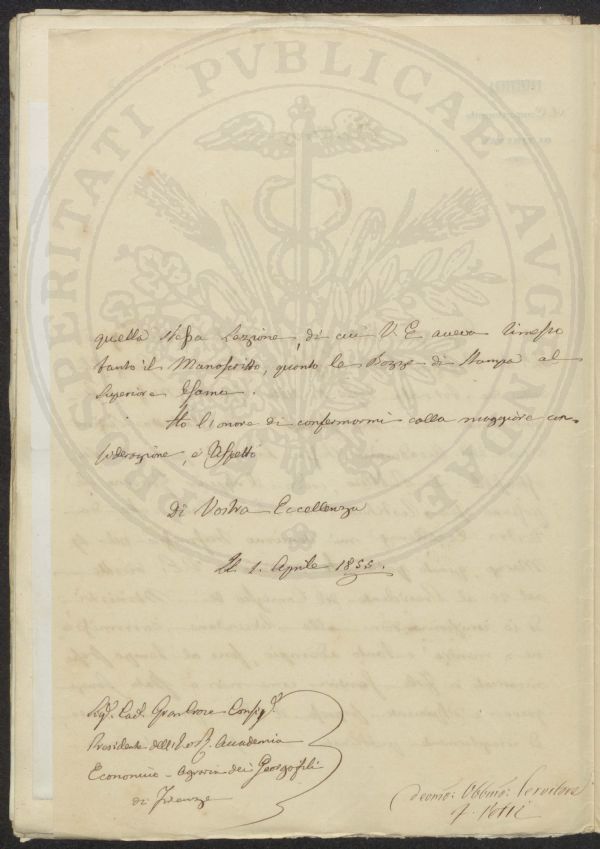 PROSPERITATI PVBLICAE AVGENDAE
quella stessa Lezzione, di cui V. E. aveva rimesso
tanto il Manoscritto, quanto le Bozze di Stampa al
Superiore Esame.
Ho l'onore di confermarmi colla maggiore con-
siderazione, e Rispetto
Di Vostra Eccellenza
Li 1. Aprile 1855.
Sig.r Cav. Gran Croce Consig.r
Presidente dell' I. e R. Accademia
Economico-Agraria dei Georgofili
di Firenze
Devmo: Obbmo: Servitore